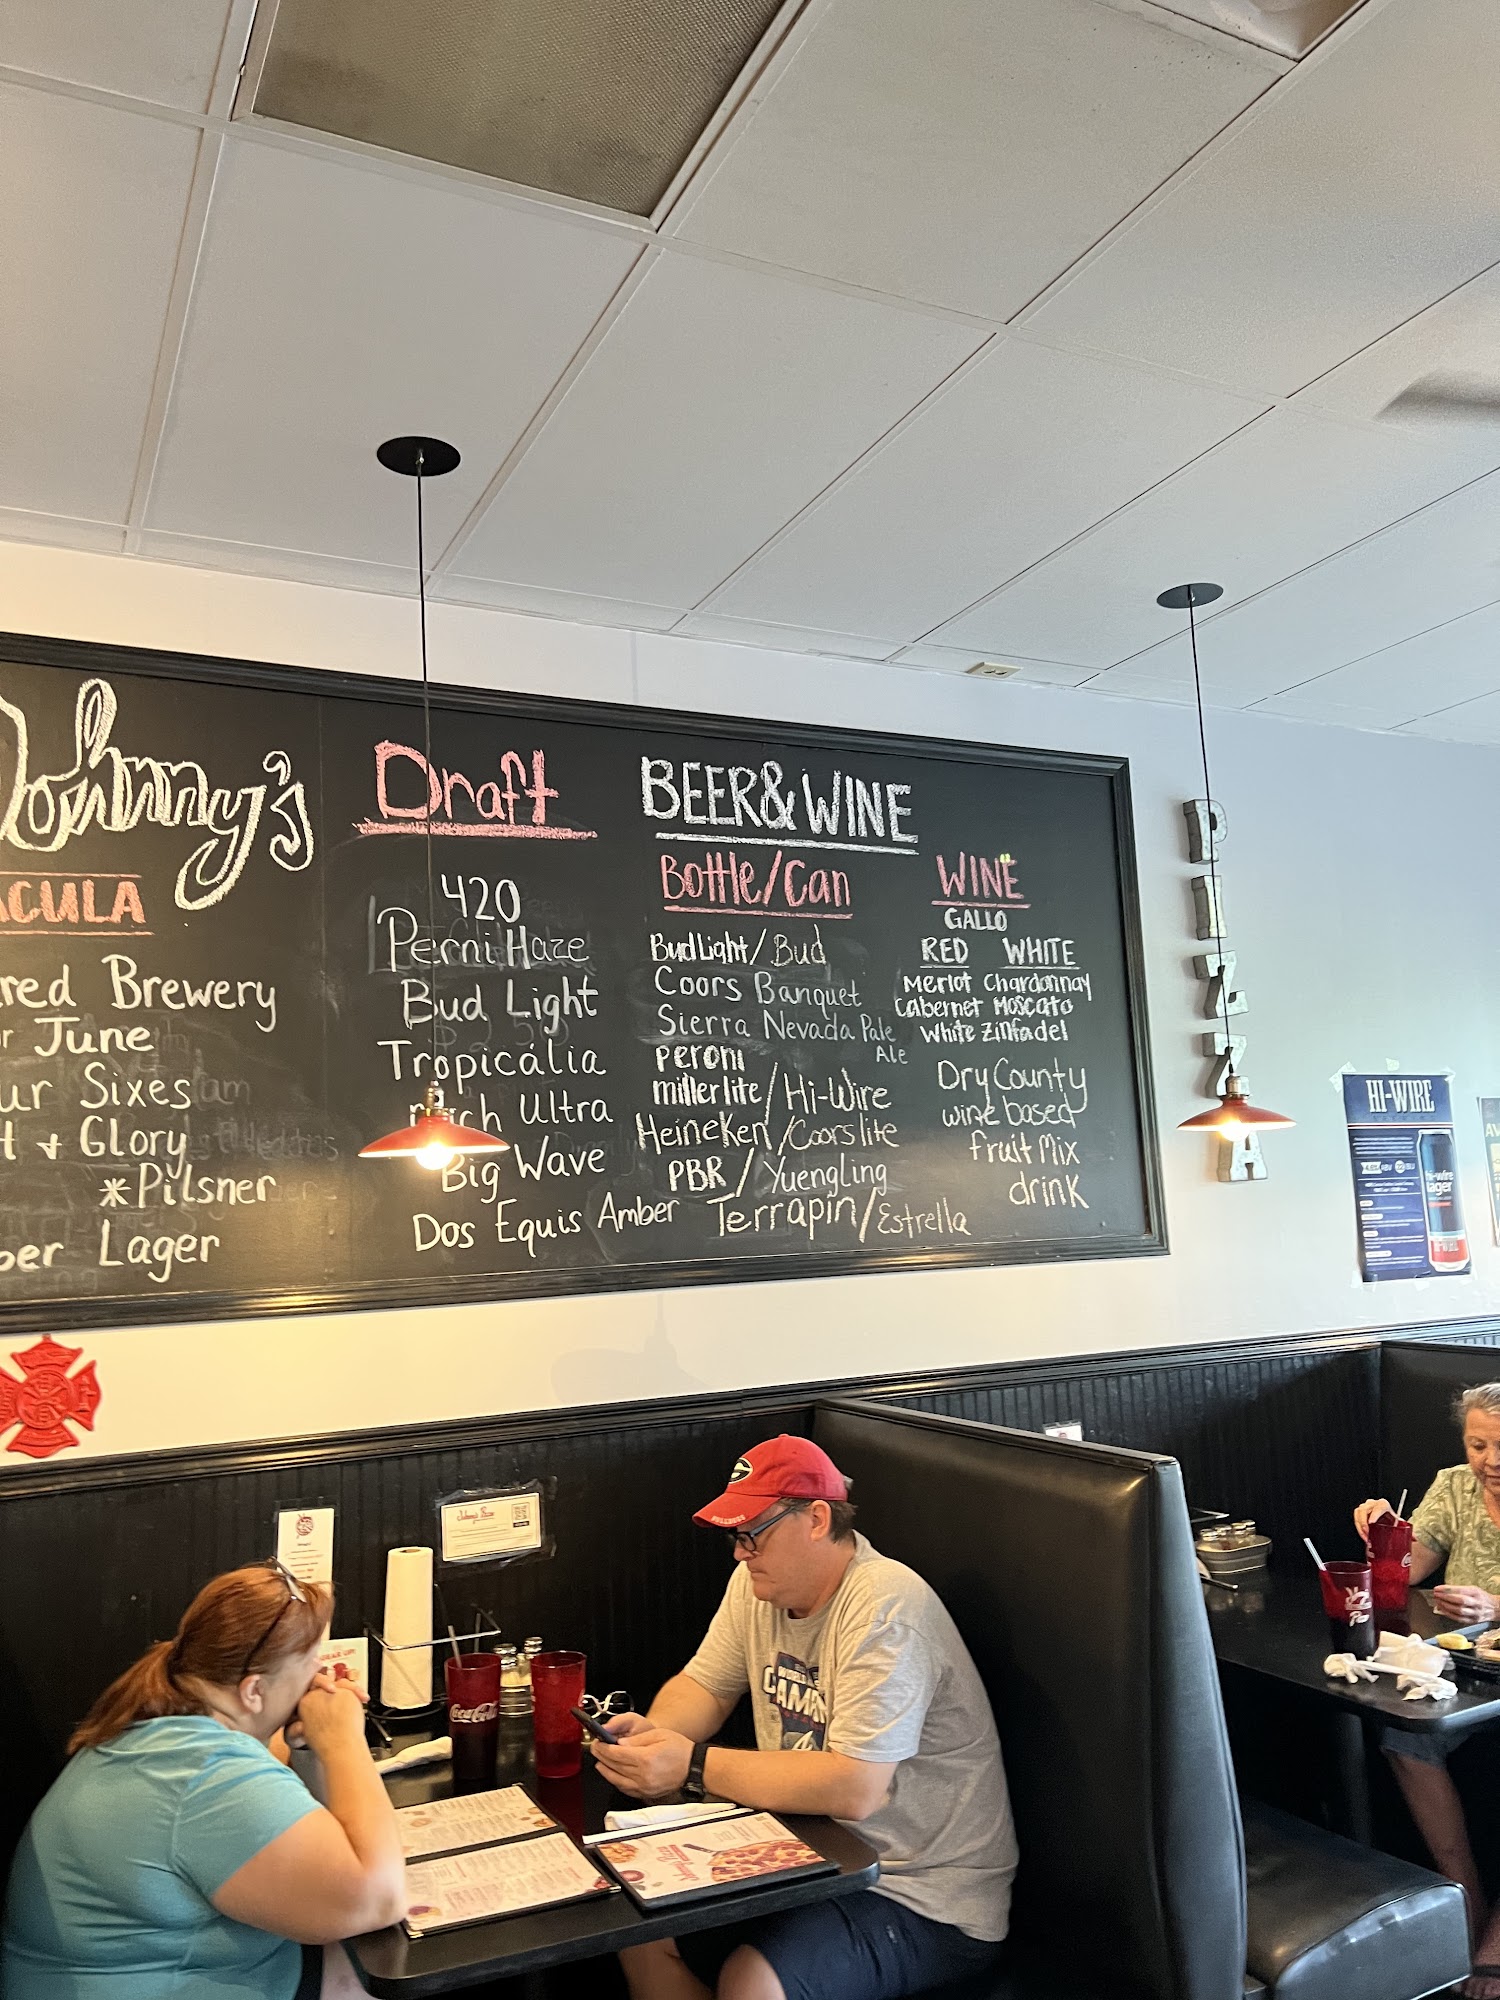 Johnny's
ACULA
red Brewery
or June
ur Sixes
t & Glory
*Pilsner
ber Lager
Draft
420
Perni Haze
Bud Light
Tropicália
ch Ultra
Big Wave
Dos Equis Amber
BEER & WINE
Bottle/Can
Bud Light/Bud
Coors Banquet
Sierra Nevada Pale
Ale
Peroni
miller lite/Hi-Wire
Heineken/Coors lite
PBR/Yuengling
Terrapin/Estrella
WINE
GALLO
RED WHITE
Merlot Chardonnay
Cabernet Moscato
White Zinfadel
Dry County
wine based
fruit Mix
drink
PIZZA
HI-WIRE
hi-wire
lager
G
BULLDOGS
Coca-Cola